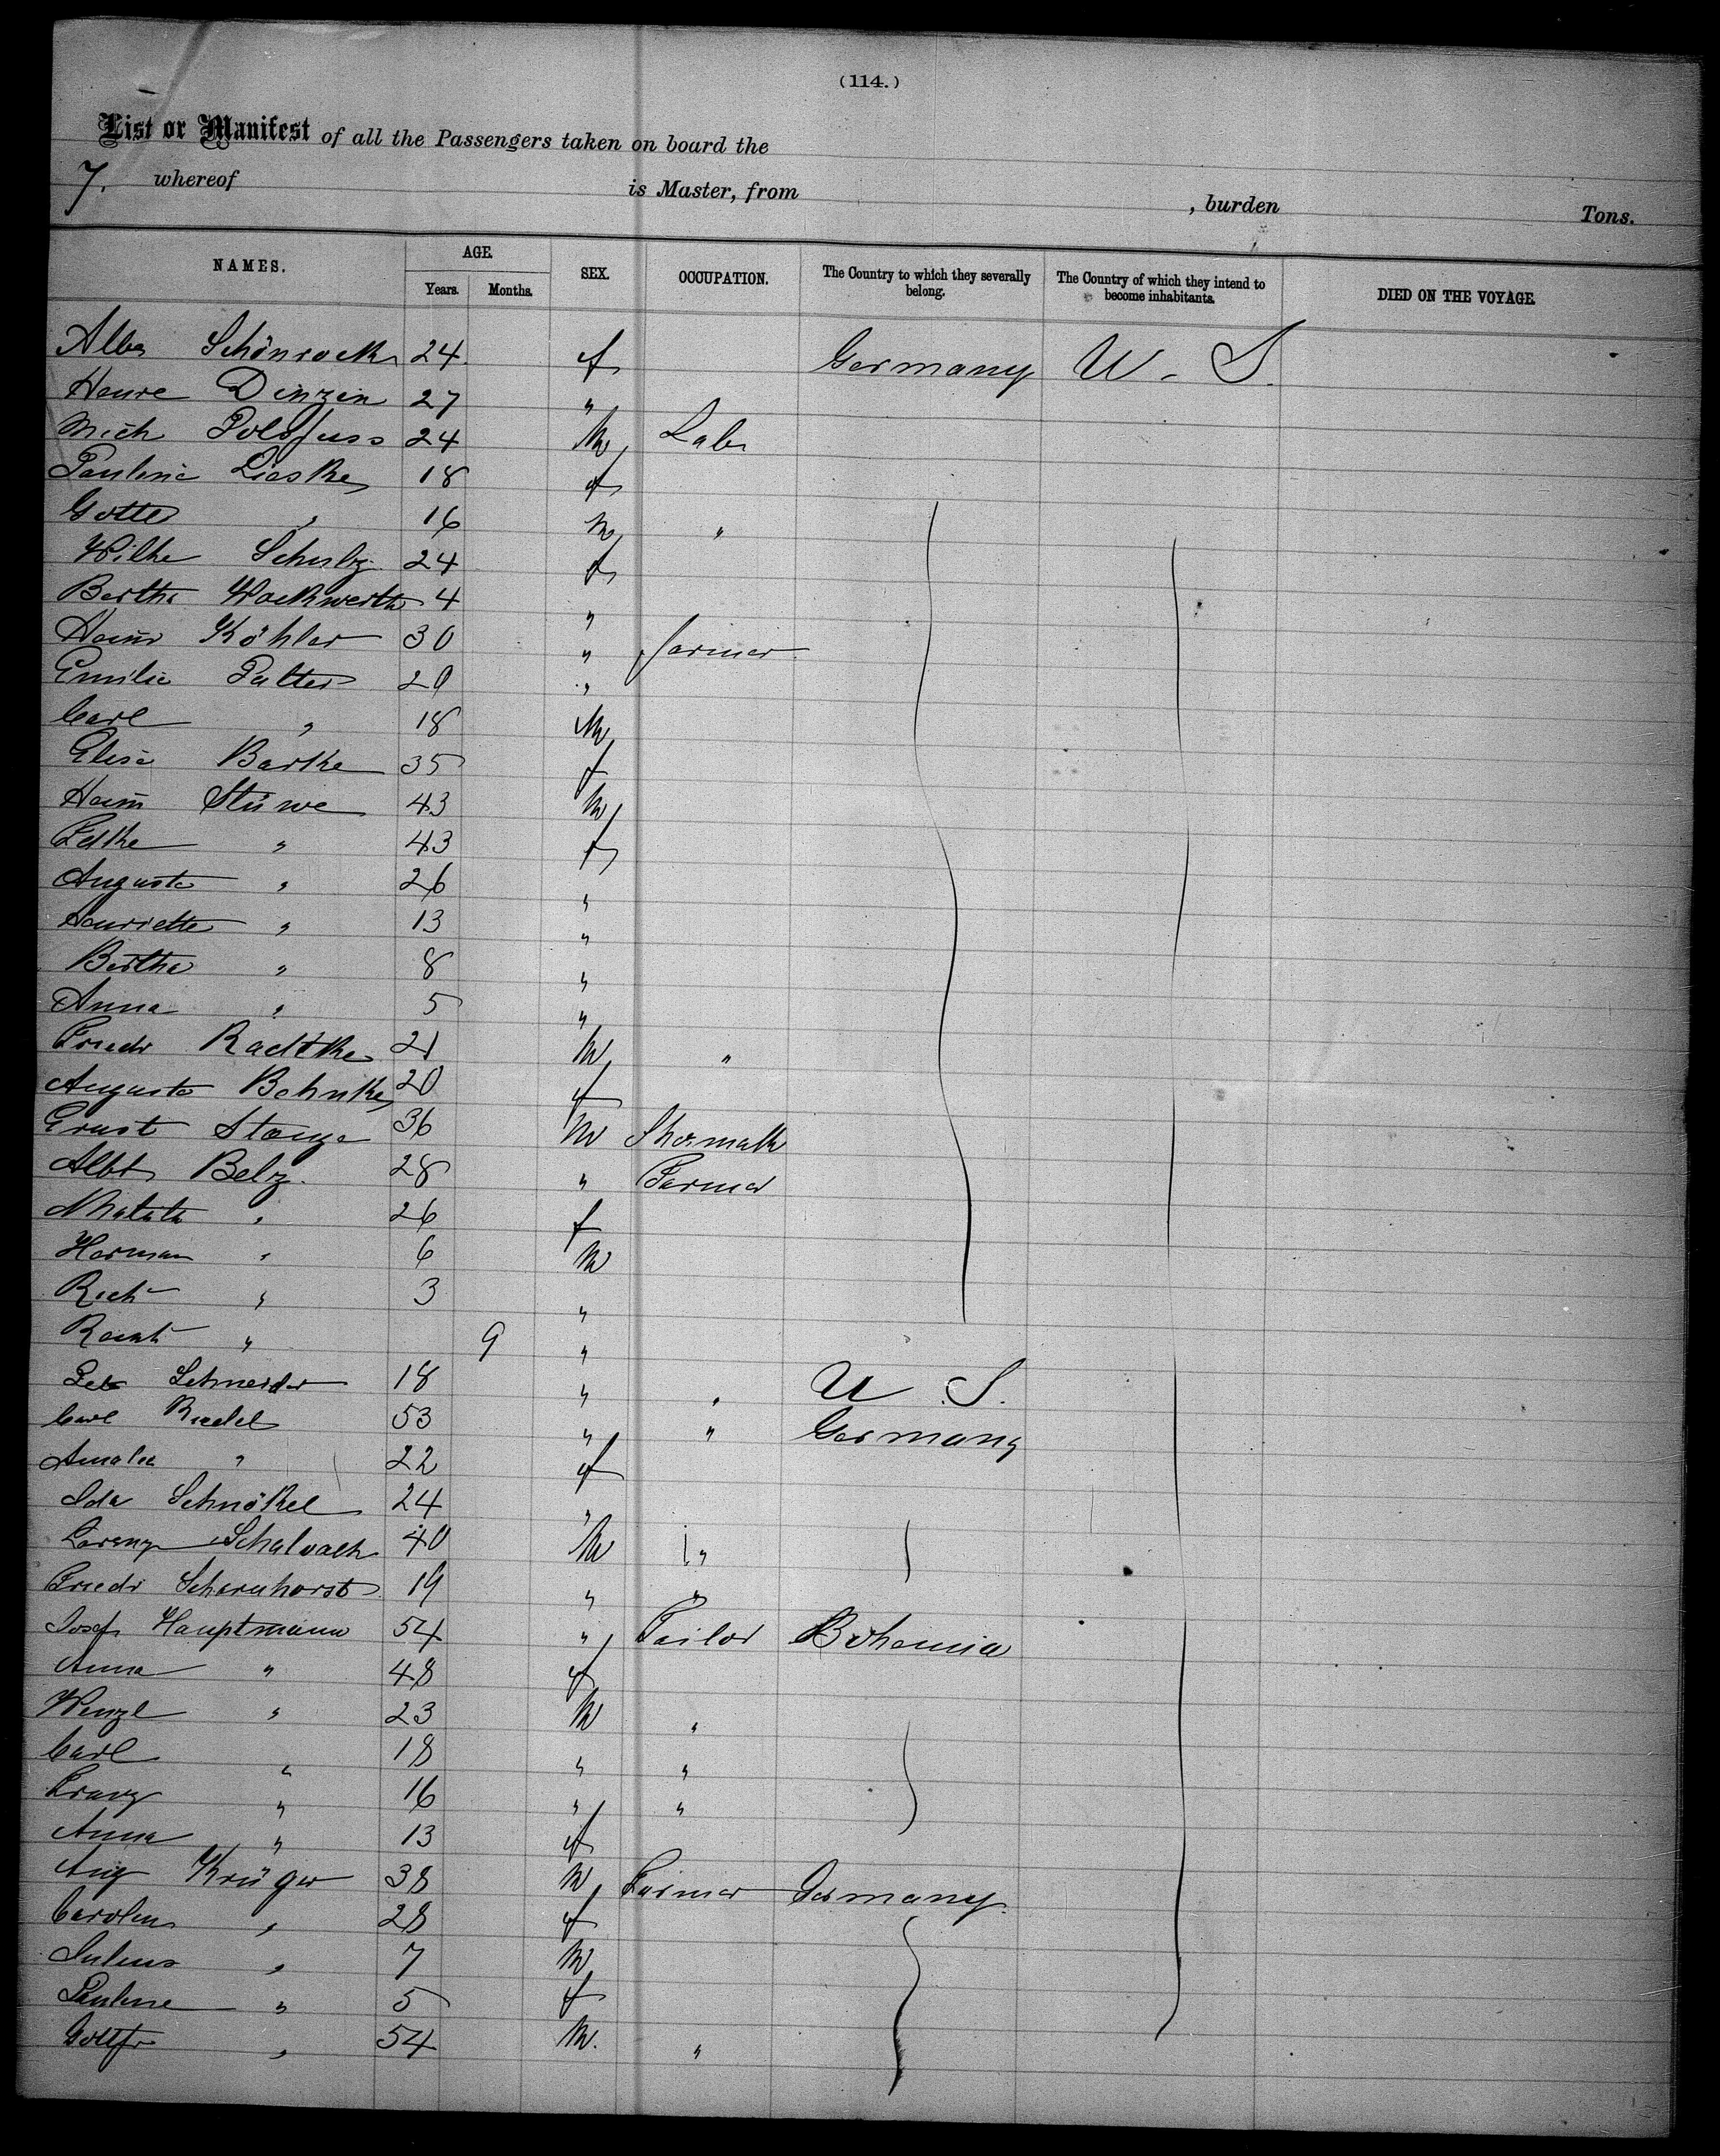 (114.)
List or Manifest of all the Passengers taken on board the
7. whereof is Master, from , burden Tons.
NAMES. AGE. SEX. OCCUPATION. The Country to which they severally belong. The Country of which they intend to become inhabitants. DIED ON THE VOYAGE.
Years. Months.
Schönrock 24 f Germany U. S.
Dinzin 27 "
Mich 24 M Lab
Pauline Lieske 18 f
" 16 M "
Wilhe Schulz 24 f
Bertha Wackwerth 4 "
Köhler 30 " farmer
Emilie Palter 29 "
Carl " 18 M
Elise Barthe 35 f
Stüwe 43 M
" 43 f
Auguste " 26 "
Henriette " 13 "
Bertha " 8 "
Anna " 5 "
Friedr Radtke 21 M "
Auguste Behnke 20 f
Ernst 36 M
Albt Belz 28 " Farmer
" 26 f
Herman " 6 M
Rich " 3 "
" 9 "
Schneider 18 " " U. S.
Carl 53 " " Germany
Amalia " 22 f
Ida Schnökel 24 "
Lorenz 40 M "
Friedr Scharnhorst 19 " "
Josef Hauptmann 54 " Tailor Bohemia
Anna " 48 f
Wenzl " 23 M "
Carl " 18 " "
Franz " 16 " "
Anna " 13 f
Aug Krüger 38 M Farmer Germany
Carolin " 28 f
Julius " 7 M
Pauline " 5 f
Gottfr " 54 M. "